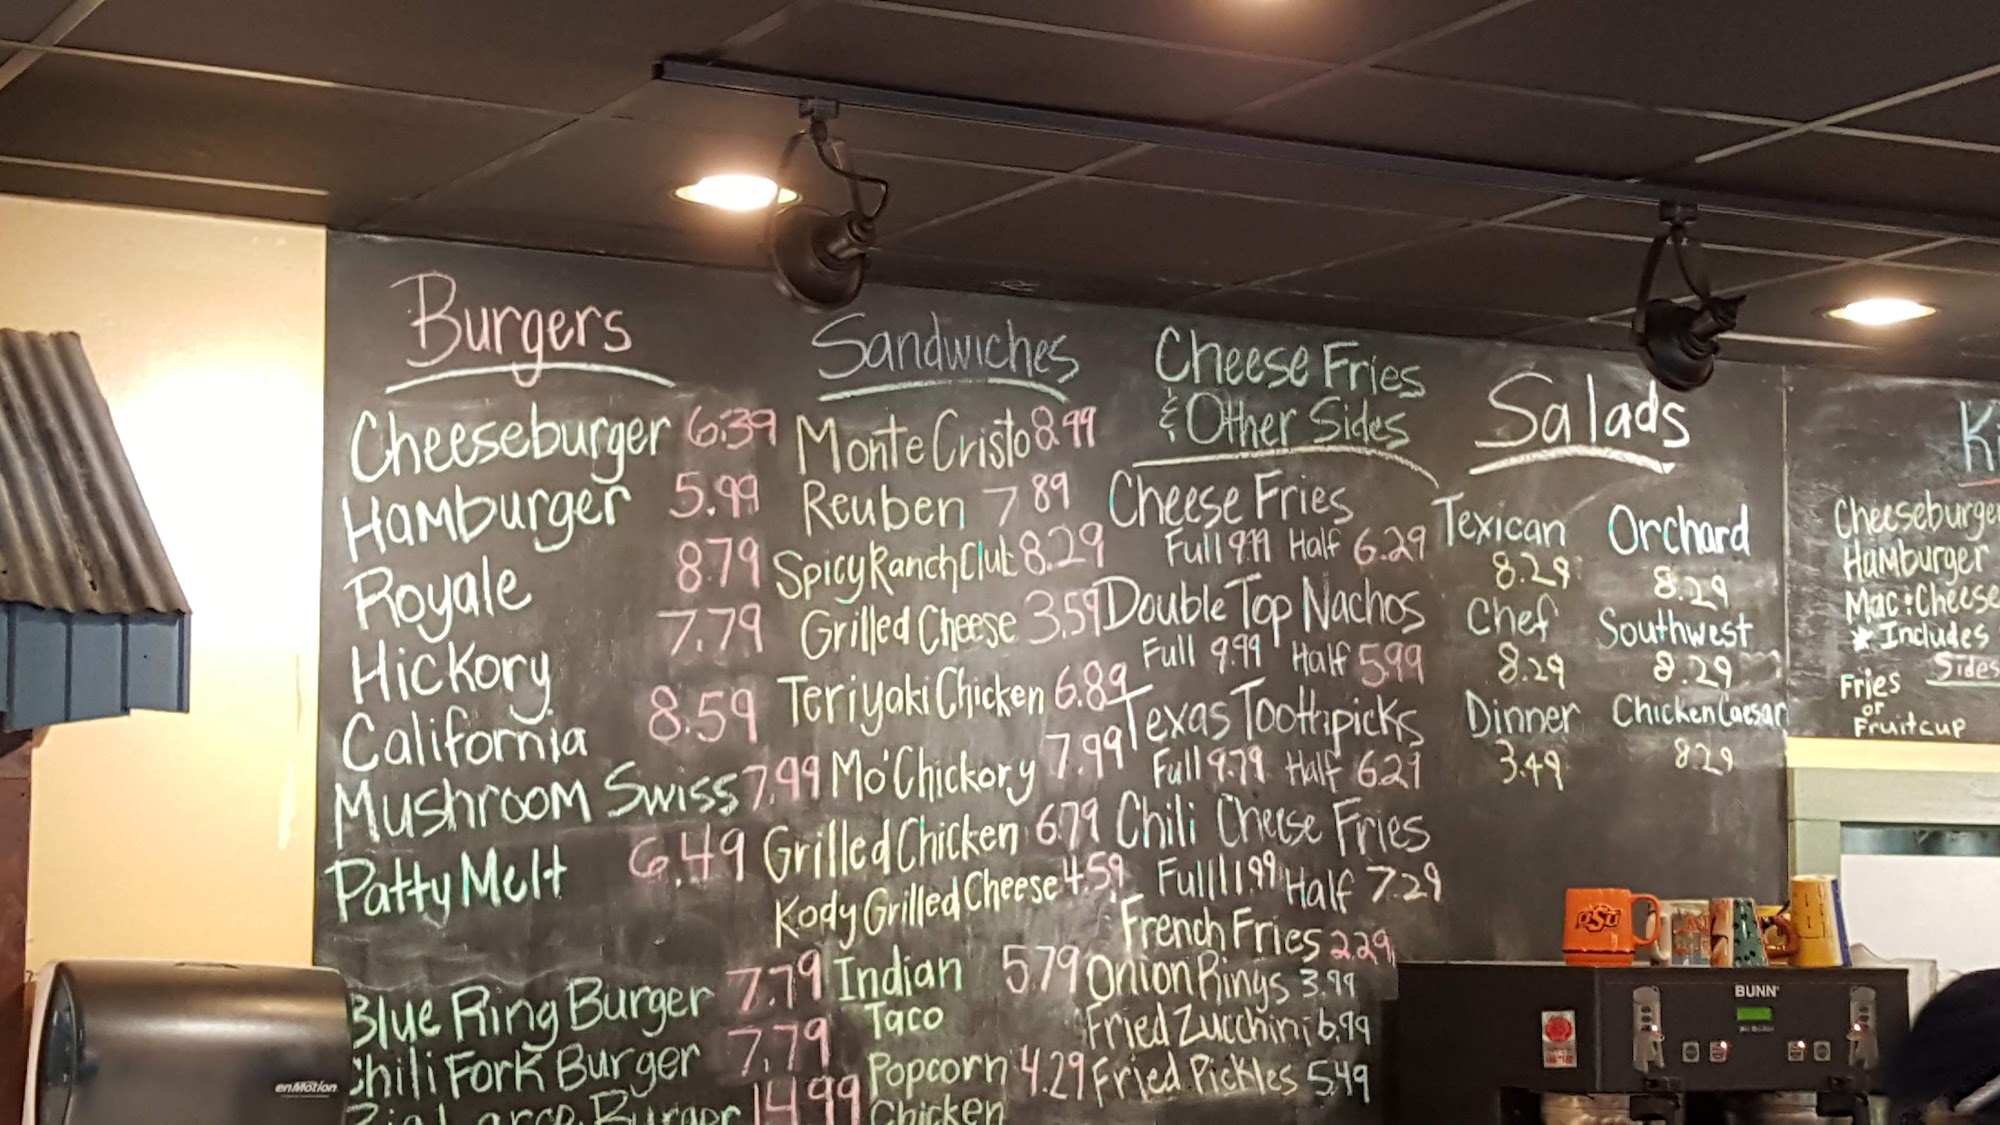 Burgers
Cheeseburger 6.39
Hamburger 5.99
Royale 8.79
Hickory 7.79
California 8.59
Mushroom Swiss 7.99
Patty Melt 6.49
Blue Ring Burger 7.79
Chili Fork Burger 7.79
Burger 14.99
Sandwiches
Monte Cristo 8.99
Reuben 7.89
Spicy Ranch Club 8.29
Grilled Cheese 3.59
Teriyaki Chicken 6.89
Mo'Chickory 7.99
Grilled Chicken 6.79
Kody Grilled Cheese 4.59
Indian 5.79
Taco
Popcorn 4.29
Chicken
Cheese Fries
& Other Sides
Cheese Fries
Full 9.99 Half 6.29
Double Top Nachos
Full 9.99 Half 5.99
Texas Toothpicks
Full 9.79 Half 6.29
Chili Cheese Fries
Full 11.99 Half 7.29
French Fries 2.29
Onion Rings 3.99
Fried Zucchini 6.99
Fried Pickles 5.49
Salads
Texican
8.29
Chef
8.29
Dinner
3.49
Orchard
8.29
Southwest
8.29
Chicken Caesar
8.29
Ki
Cheeseburge
Hamburger
Mac & Cheese
* Includes
Sides
Fries
or
Fruit cup
enMotion
OSU
BUNN